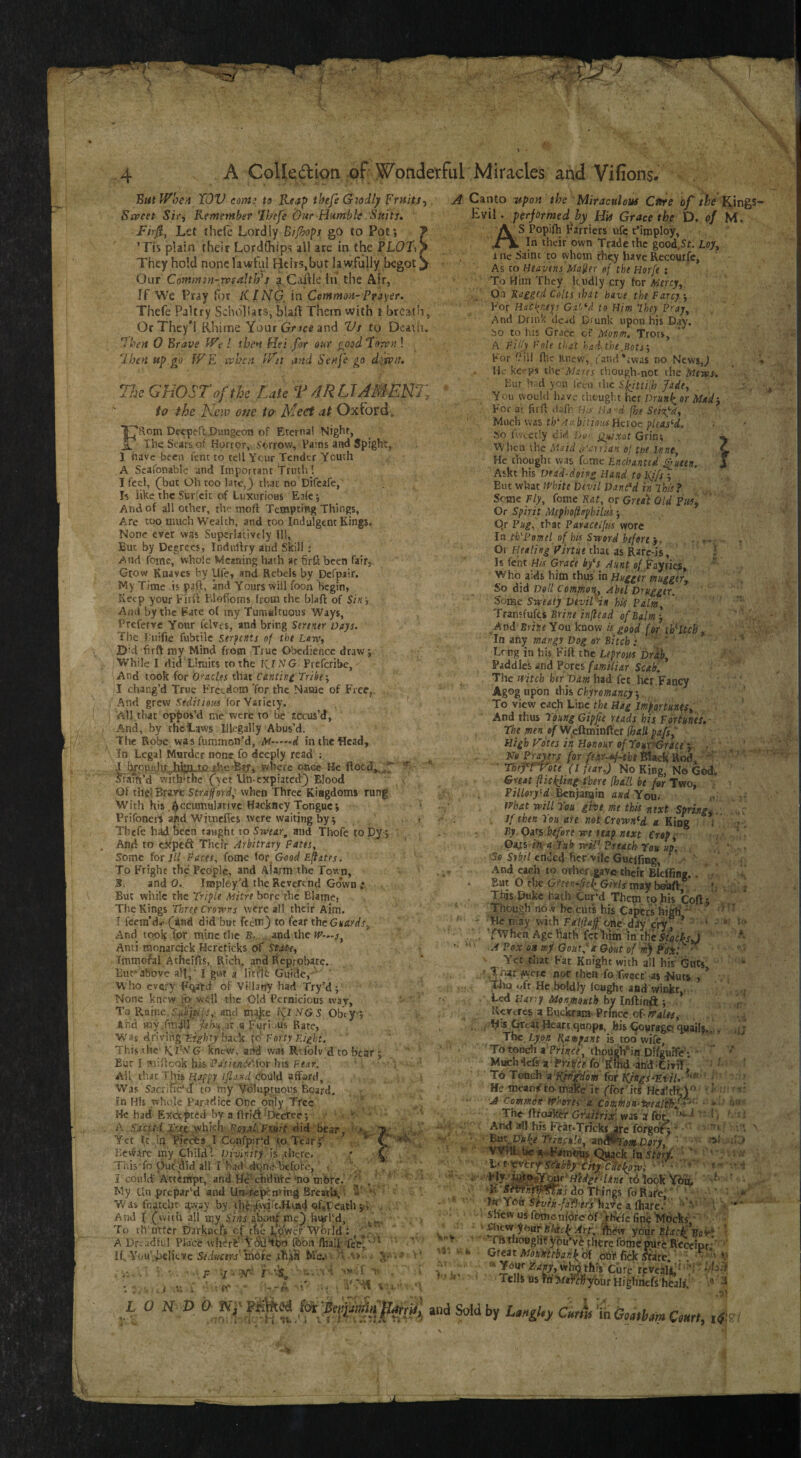 4 A Collection of Wonderful Miracles and Visions.
But When YOU come to Reap these Goodly Fruits,
Sweet Sir, Remember These Our Humble Suits.
First, Let these Lordly Bishops go to Pot;
'Tis plain their Lordships all are in the PLOT,
They hold none lawful Heirs, but lawfully begot
Our Common-wealth's a Castle in the Air,
If We Pray for KING in Common-Prayer.
These Paltry Schollars, blast Them with 1 breath,
Or They'l Rhime Your Grace and Us to Death.
Then O Brave We! then Hei for our good Town!
Then up go WE when Wit and Sense go down.
The GHOST of the Late PARLIAMENT,
to the New one to Meet at Oxford.
FRom Deepest Dungeon of Eternal Night,
The Seats of Horror, Sorrow, Pains and Spight,
I have been sent to tell Your Tender Youth
A Seasonable and Important Truth!
I feel, (but Oh too late,) that no Disease,
Is like the Surfeit of Luxurious Ease;
And of all other, the most Tempting Things,
Are too much Wealth, and too Indulgent Kings.
None ever was Superlatively Ill,
But by Degrees, Industry and Skill:
And some, whose Meaning hath at first been fair,
Grow Knaves by Use, and Rebels by Despair.
My Time is past, and Yours will soon begin,
Keep your First Blossoms from the blast of Sin;
And by the Fate of my Tumultuous Ways,
Preserve Your selves, and bring Serener Days.
The busie subtile Serpents of the Law,
Did first my Mind from True Obedience draw;
While I did Limits to the KING Prescribe,
And took for Oracles that Canting Tribe;
I chang'd True Freedom for the Name of Free,
And grew Seditious for Variety.
All that oppos'd me were to be accus'd,
And, by the Laws Illegally Abus'd.
The Robe was summon'd, M-----d in the Head,
In Legal Murder none so deeply read:
I brought him to the Bar, where once He stood,
Stain'd with the (yet Un-expiated) Blood
Of the Brave Strafford, when Three Kingdoms rung
With his Accumulative Hackney Tongue;
Prisoners and Witnesses were waiting by;
These had been taught to Swear, and Those to Dy;
And to expect Their Arbitrary Fates,
Some for Ill Faces, some for Good Estates.
To Fright the People, and Alarm the Town,
B. and O. Imploy'd the Reverend Gown:
But while the Triple Mitre bore the Blame,
The Kings Three Crowns were all their Aim.
I seem'd, (and did but seem) to fear the Guards,
And took for mine the B. and the W---s,
Anti monarcick Hereticks of State,
Immoral Atheists, Rich, and Reprobate.
But above all, I got a little Guide,
Who every Foard of Villany had Try'd;
None knew so well the Old Pernicious way,
To Ruine Subjects, and make KINGS Obey;
And my small Jehu at a Furious Rate,
Was driving Eighty back to Forty Eight.
This the KING knew, and was Resolv'd to bear;
But I mistook his Patience for his Fear.
All that This Happy Island could afford,
Was Sacrific'd to my Voluptuous Board.
In His whole Paradice One only Tree
He had Excepted by a strict Decree;
A Sacred Tree which Royal Fruit did bear,
Yet it in Pieces I Conspir'd to Tear;
Beware my Child! Divinity is there.
This so Out did all I had done before,
I could Attempt, and He endure no more.
My Un prepar'd and Un-repenting Breath,
Was snatcht away by the swift Hand of Death;
And I (with all my Sins about me) hurl'd,
To th'utter Darkness of the Lower World:
A Dreadful Place where You too soon shall see,
If You believe Seducers more than Me.
A Canto upon the Miraculous Cure of the Kings-
Evil. performed by His Grace the D. of M.
AS Popish Farriers use t'imploy,
In their own Trade the good St. Loy,
The Saint to whom they have Recourse,
As to Heavens Master of the Horse:
To Him They loudly cry for Mercy,
On Ragged Colts that have the Farcy;
For Hackneys Gal'd to Him They Pray,
And Drink dead Drunk upon his Day.
So to his Grace of Monm. Trots,
A Filly Fole that had the Bots;
For still she knew, (and 'twas no News,)
He keeps the Mares though not the Mews.
But had you seen the Skittish Jade,
You would have thought her Drunk or Mad;
For at first dash His Hand she Seiz'd,
Much was th'Ambitious Heroe pleas'd.
So sweetly did Don Quixot Grin;
When the Maid of the Inne,
He thought was some Enchanted Queen.
Askt his Dead-doing Hand to Kiss;
But what White Devil Danc'd in This?
Some Fly, some Rat, or Great Old Puss,
Or Spirit Mephostophilus;
Or Pug, that Paracelsus wore
In th'Pomel of his Sword before;
Or Healing Virtue that as Rare is,
Is sent His Grace by's Aunt of Fayries,
Who aids him thus in Hugger mugger,
So did Doll Common, Abel Drugger.
Some Sweaty Devil in his Palm,
Transfuses Brine instead of Balm;
And Brine You know is good for th'Itch,
In any mangy Dog or Bitch:
Long in his Fist the Leprous Drab,
Paddles and Pores familiar Scab.
The Witch her Dam had set her Fancy
Agog upon this Chyromancy;
To view each Line the Hag Importunes,
And thus Young Gipsie reads his Fortunes.
The men of Westminster shall pass,
High Votes in Honour of Your Grace;
No Prayers for fear of the Black Rod,
They'l Vote (I fear) No King, No God.
Great stickling there shall be for Two,
Pillory'd Benjamin and You.
What will You give me this next Spring,
If then You are not Crown'd a King
By Oats before we reap next Crop,
Oats in a Tub will Preach You up.
So Sybil ended her vile Guessing,
And each to other gave their Blessing.
But O the Green-sick Girls may boast,
This Duke hath Cur'd Them to his Cost;
Though now he cuts his Capers high,
He may with Falstaff one day cry,
(When Age hath set him in the Stocks,)
A Pox on my Gout, a Gout of my Pox;
Yet that Fat Knight with all his Guts,
That were not then so sweet as Nuts,
Tho oft He boldly fought and winkt,
Led Harry Monmouth by Instinct;
Reveres a Buckram Prince of Wales,
His Great Heart quops, his Courage quails,
The Lyon Rampant is too wise,
To touch a Prince, though in Disguise;
Much less a Prince so Kind and Civil
To Touch a Kingdom for Kings-Evil.
He means to make it (for its Health,)
A Common Whore a Common-wealth,
The stroaker Graitrix was a sot,
And all his Feat-Tricks are forgot;
But Duke Trinculo, and Tom Dory,
Will be a Famous Quack in Story.
Let every Scabby City Cuckow,
Fly into Your Hedge-Lane to look You,
Seventh Sons do Things so Rare,
In You Seven-fathers have a share.
Shew us some more of these fine Mocks,
Shew Your Black Art, shew your Black Box;
'Tis thought You've there some pure Receipt,
Great Mountebank of our sick State.
Your Zany, who this Cure reveals,
Tells us in Metre your Highness heals.
LONDON, Printed for Benjamin Harris, and Sold by Langley Curtis in Goatham Court, 168